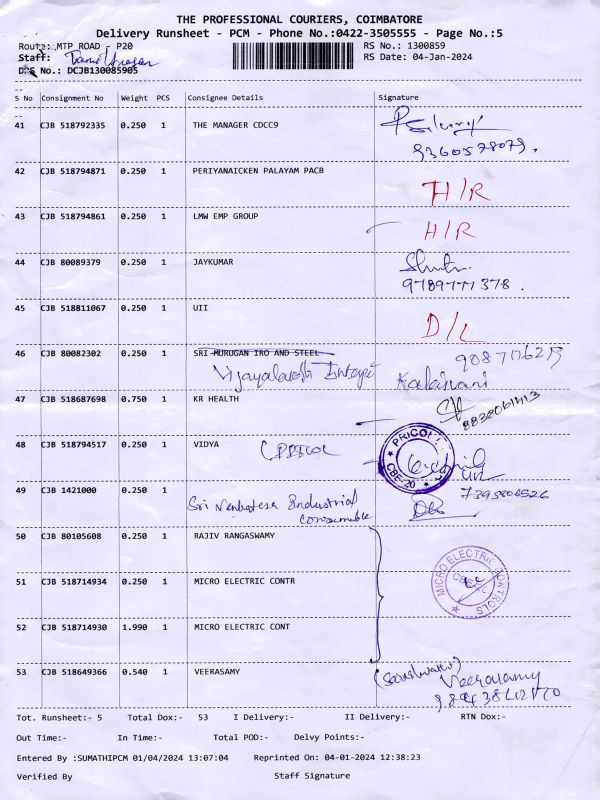 THE PROFESSIONAL COURIERS, COIMBATORE
Delivery Runsheet - PCM - Phone No.:0422-3505555 - Page No.:5
Route: MTP ROAD , P20 RS No.: 1300859
Staff: RS Date: 04-Jan-2024
D.S No.: DCJB130085905
S No Consignment No Weight PCS Consignee Details Signature
41 CJB 518792335 0.250 1 THE MANAGER CDCC9
9360578079.
42 CJB 518794871 0.250 1 PERIYANAICKEN PALAYAM PACB H/R
43 CJB 518794861 0.250 1 LMW EMP GROUP H/R
44 CJB 80089379 0.250 1 JAYKUMAR
9789771378.
45 CJB 518811067 0.250 1 UII D/L
46 CJB 80082302 0.250 1 SRI MURUGAN IRO AND STEEL
Kalaivani
47 CJB 518687698 0.750 1 KR HEALTH
48 CJB 518794517 0.250 1 VIDYA PRICOL CBE-20
49 CJB 1421000 0.250 1 7395806526
Sri Venkatesa Industrial
Consumable
50 CJB 80105608 0.250 1 RAJIV RANGASWAMY
51 CJB 518714934 0.250 1 MICRO ELECTRIC CONTR MICRO ELECTRIC CONTROLS
52 CJB 518714930 1.990 1 MICRO ELECTRIC CONT
53 CJB 518649366 0.540 1 VEERASAMY Veerasamy
Tot. Runsheet:- 5 Total Dox:- 53 I Delivery:- II Delivery:- RTN Dox:-
Out Time:- In Time:- Total POD:- Delvy Points:-
Entered By :SUMATHIPCM 01/04/2024 13:07:04 Reprinted On: 04-01-2024 12:38:23
Verified By Staff Signature